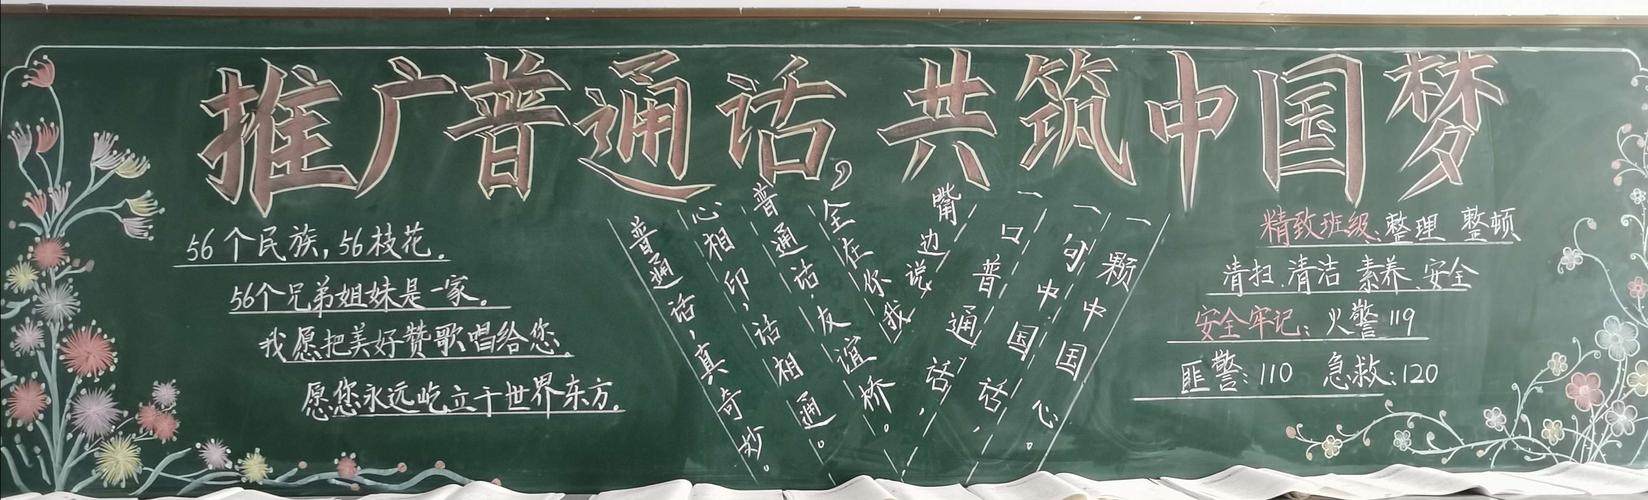 推广普通话,共筑中国梦
56个民族,56枝花。
56个兄弟姐妹是一家。
我愿把美好赞歌唱给您。
愿您永远屹立于世界东方。
普通话,真奇妙。
心相印,话相通。
普通话,友谊桥。
全在你我
嘴边说,
一口普通话,
一句中国话,
一颗中国心。
精致班级:整理 整顿
清扫.清洁 素养.安全
安全牢记:火警119
匪警:110 急救:120